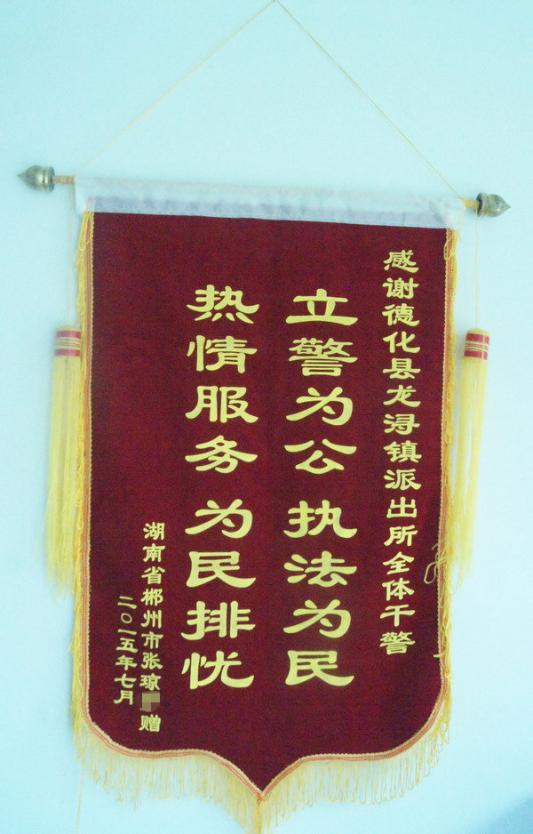 感谢德化县龙浔镇派出所全体干警
立警为公 执法为民
热情服务 为民排忧
湖南省郴州市张琼 赠
二〇一五年七月